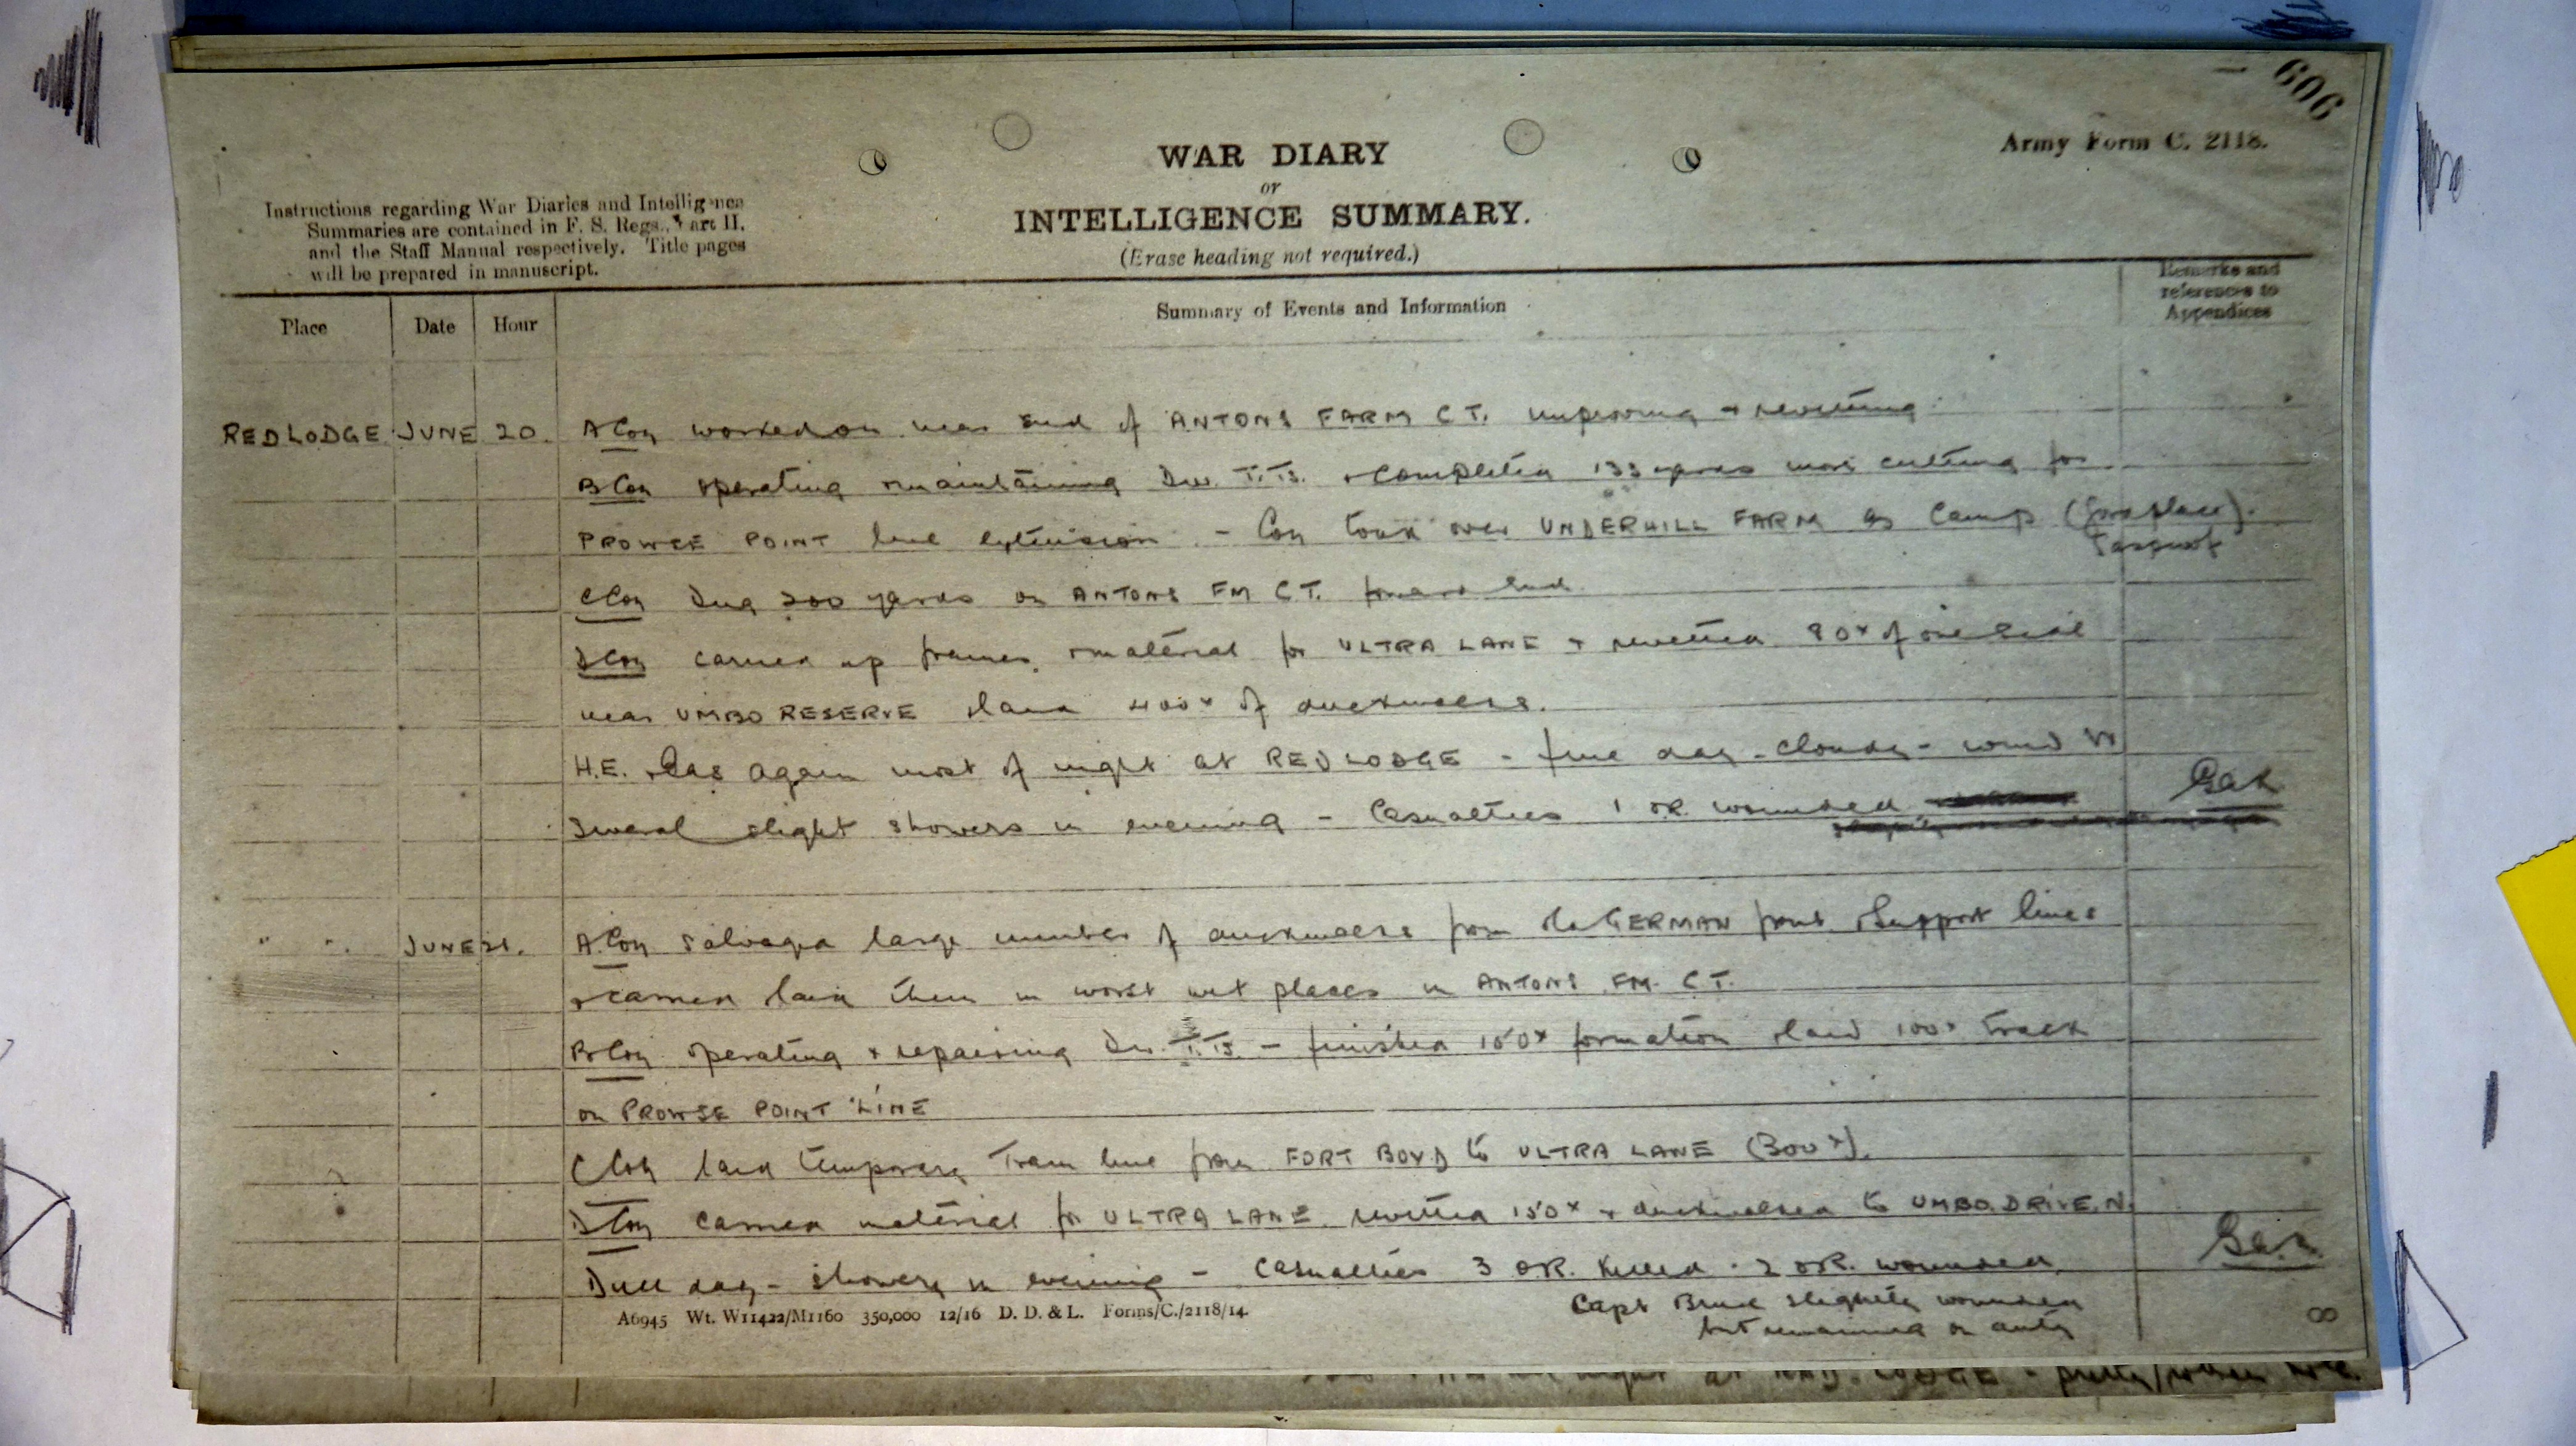 606
Army Form C. 2118.
WAR DIARY
or
INTELLIGENCE SUMMARY.
(Erase heading not required.)
Instructions regarding War Diaries and Intelligence
Summaries are contained in F. S. Regs., Part II.
and the Staff Manual respectively. Title pages
will be prepared in manuscript.
Place Date Hour Summary of Events and Information Remarks and
references to
Appendices
RED LODGE JUNE 20. A Coy worked on near end of ANTONS FARM C T. improving + revetting
B Coy operating + maintaining Dec. T.TS. + completed 133 yards more cutting for
PROWSE POINT line extension - Coy took over UNDERHILL FARM as Camp
C Coy dug 200 yards on ANTONS FM C T. forward end.
D Coy carried up frames + material for ULTRA LANE + revetted 80x of one side
near UMBO RESERVE + laid 400x of duckwalks.
H.E. + Gas again most of night at RED LODGE - fine day - cloudy - wind W
Several slight showers in evening - Casualties 1 OR wounded
" " JUNE 21. A Coy salvaged large number of duckwalks from the GERMAN front + support lines
+ laid them in worst wet places in ANTONS FM. C T.
B Coy operating + repairing T.TS. - finished 150x formation + laid 100x track
on PROWSE POINT LINE
C Coy laid temporary Tram line from FORT BOYD to ULTRA LANE (300x).
D Coy carried material for ULTRA LANE revetted 150x + duckwalked to UMBO DRIVE. N.
Dull day - showery in evening - Casualties 3 OR. killed . 2 OR. wounded
Capt slightly wounded
but remained on duty
A6945 Wt. W11422/M1160 350,000 12/16 D. D. & L. Forms/C./2118/14.
8